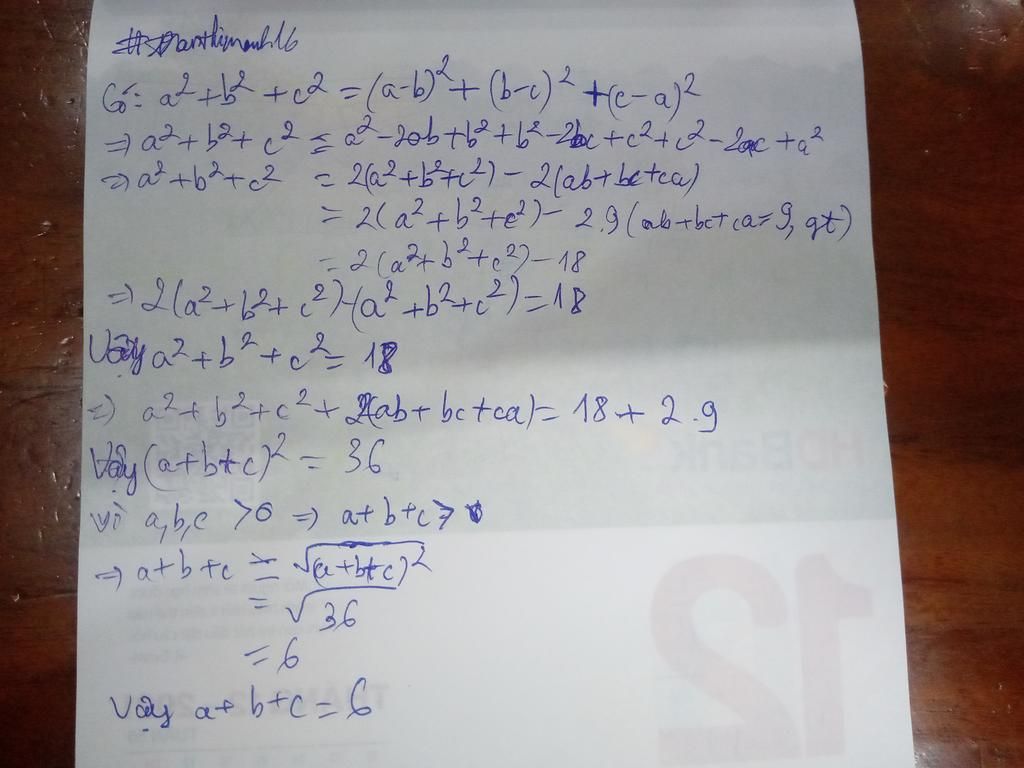 Có: a² + b² + c² = (a-b)² + (b-c)² + (c-a)²
⇒ a² + b² + c² = a² - 2ab + b² + b² - 2bc + c² + c² - 2ac + a²
⇒ a² + b² + c² = 2(a² + b² + c²) - 2(ab + bc + ca)
= 2(a² + b² + c²) - 2.9 (ab + bc + ca = 9, gt)
= 2(a² + b² + c²) - 18
⇒ 2(a² + b² + c²) - (a² + b² + c²) = 18
Vậy a² + b² + c² = 18
⇒ a² + b² + c² + 2(ab + bc + ca) = 18 + 2.9
Vậy (a + b + c)² = 36
vì a, b, c > 0 ⇒ a + b + c > 0
⇒ a + b + c = √(a + b + c)²
= √36
= 6
Vậy a + b + c = 6
HDBank
12